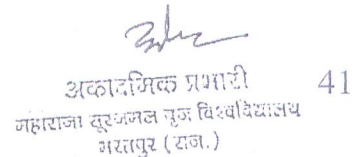 अकादमिक प्रभारी
41
महाराजा सूरजमल बृज विश्वविद्यालय
भरतपुर (राज.)